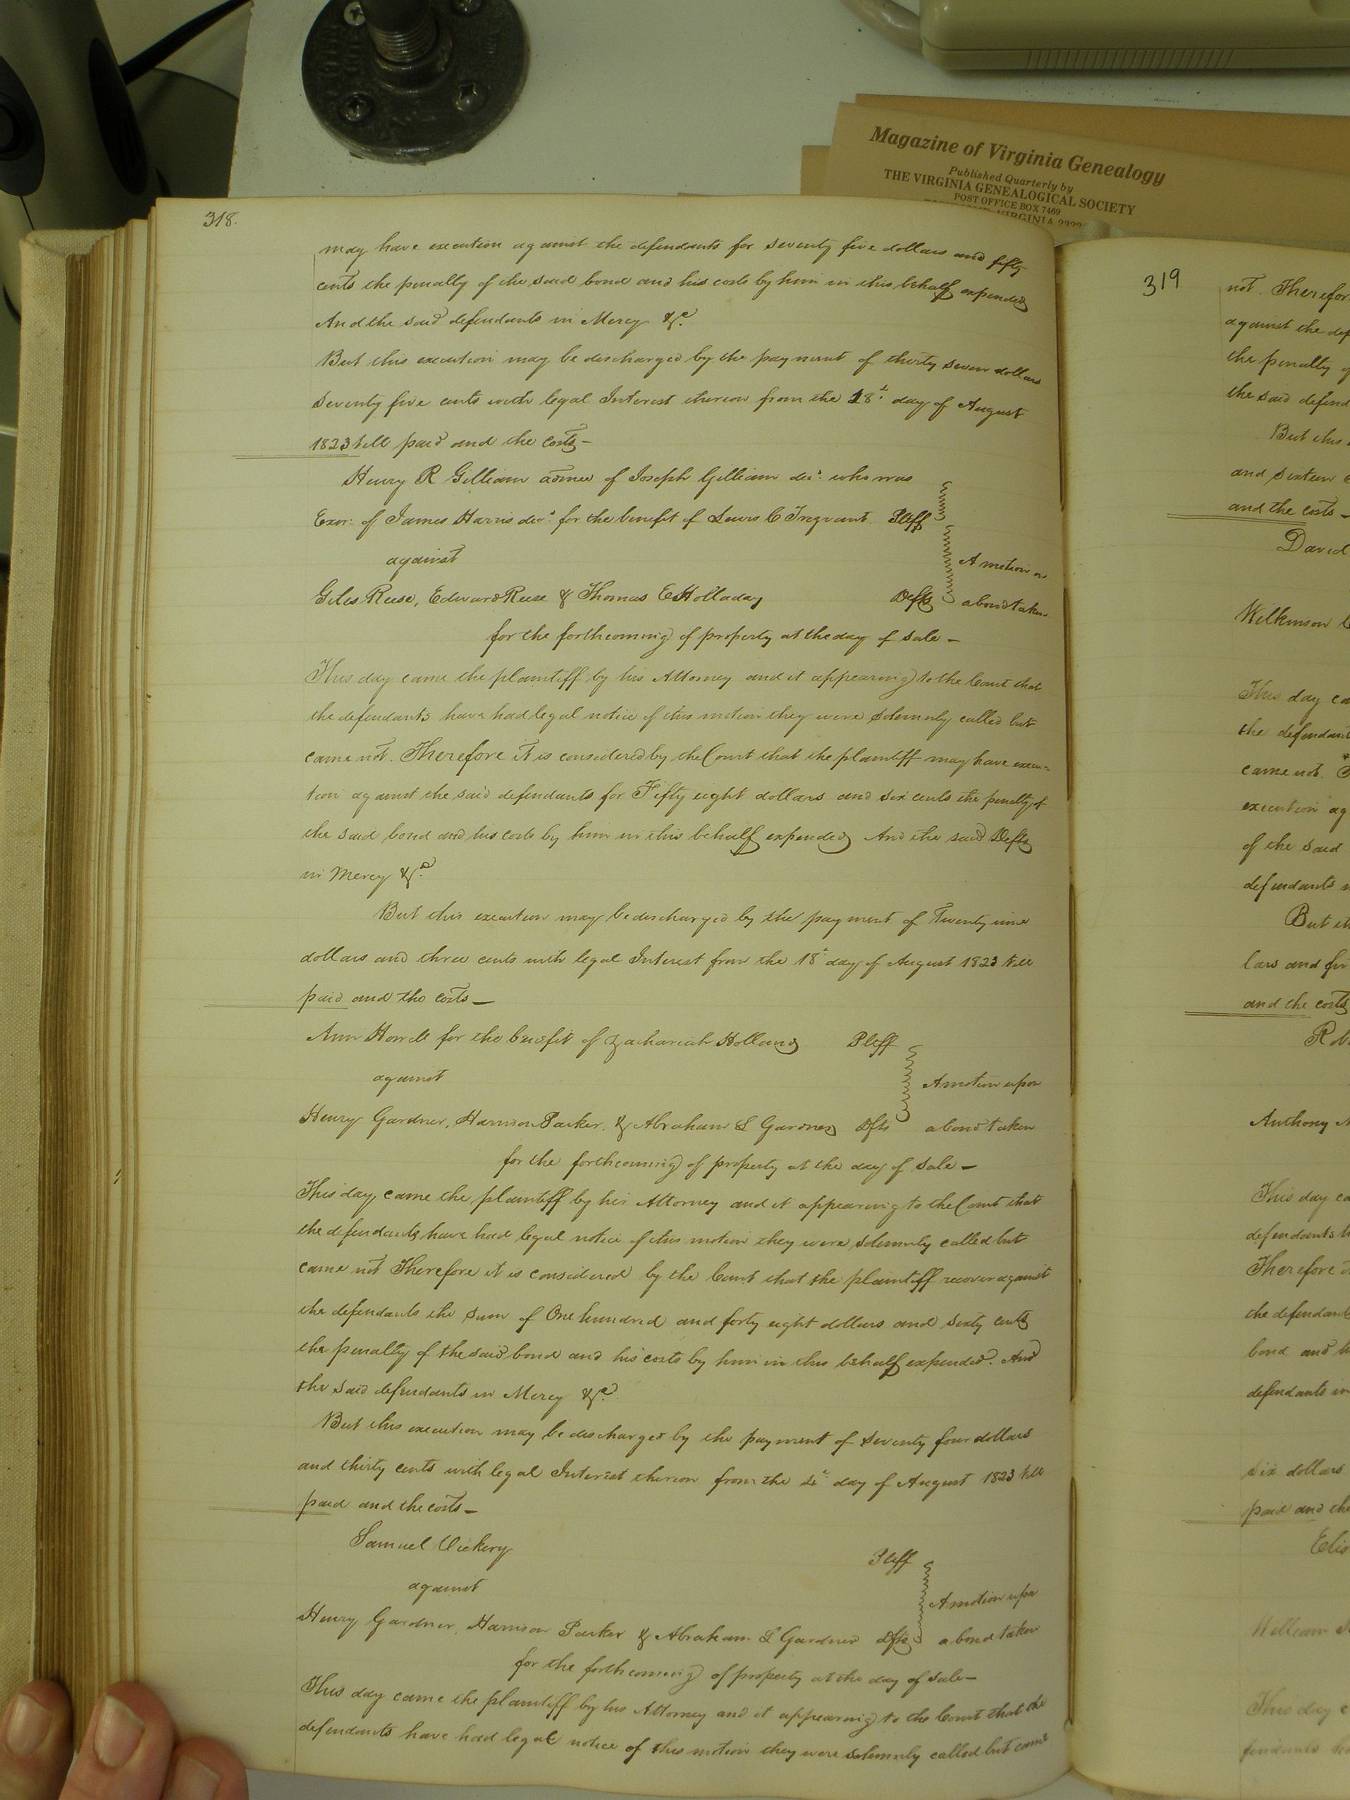 Magazine of Virginia Genealogy
Published Quarterly by
THE VIRGINIA GENEALOGICAL SOCIETY
POST OFFICE BOX 7469
VIRGINIA
318.
may have execution against the defendants for seventy five dollars and fifty
cents the penalty of the said bond and his costs by him in this behalf expended
And the said defendants in Mercy &c.
But this execution may be discharged by the payment of thirty seven dollars
seventy five cents with legal Interest thereon from the 18th day of August
1823 till paid and the costs—
Henry R Gilliam admr of Joseph Gilliam decd. who was
Exor. of James Harris decd. for the benefit of Lewis C Tregvant Pltff
against
Giles Reese, Edward Reese & Thomas E Holladay Defts
A motion on
a bond taken
for the forthcoming of property at the day of sale—
This day came the plaintiff by his Attorney and it appearing to the Court that
the defendants have had legal notice of this motion they were solemnly called but
came not. Therefore it is considered by the Court that the plaintiff may have execu-
tion against the said defendants for Fifty eight dollars and six cents the penalty of
the said bond and his costs by him in this behalf expended And the said Defts
in Mercy &c.
But this execution may be discharged by the payment of Twenty nine
dollars and three cents with legal Interest from the 18th day of August 1823 till
paid and the costs—
Ann Howell for the benefit of Zachariah Holland Pltff
against
Henry Gardner, Harrison Parker, & Abraham L Gardner Dfts
A motion upon
a bond taken
for the forthcoming of property at the day of sale—
This day came the plaintiff by his Attorney and it appearing to the Court that
the defendants have had legal notice of this motion they were solemnly called but
came not Therefore it is considered by the Court that the plaintiff recover against
the defendants the sum of One hundred and forty eight dollars and sixty cents
the penalty of the said bond and his costs by him in this behalf expended. And
the said defendants in Mercy &c.
But this execution may be discharged by the payment of seventy four dollars
and thirty cents with legal Interest thereon from the 4th day of August 1823 till
paid and the costs—
Samuel Vickery Pltff
against
Henry Gardner, Harrison Parker & Abraham L Gardner Dfts
A motion upon
a bond taken
for the forthcoming of property at the day of sale—
This day came the plaintiff by his Attorney and it appearing to the Court that the
defendants have had legal notice of this motion they were solemnly called but came
319
not. Therefor
against the def
the penalty
the said defend
But this
and sixteen
and the costs—
David
Wilkinson
This day ca
the defendant
came not.
execution ag
of the said
defendants
But th
lars and
and the costs
Rob
Anthony
This day ca
defendants h
Therefore
the defendant
bond and h
defendants in
six dollars
paid and the
Elis
William
This day c
fendants ha